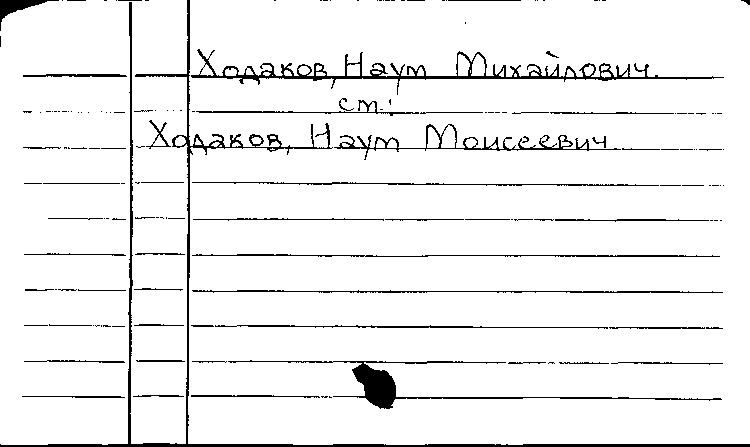 Ходаков, Наум Михайлович.
ст.:
Ходаков, Наум Моисеевич.